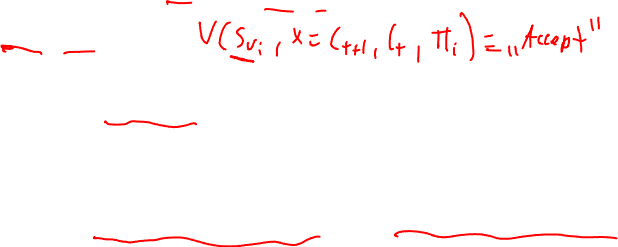 V(S_{v_i}, x = C_{t+1}, C_t, π_i) = „Accept"